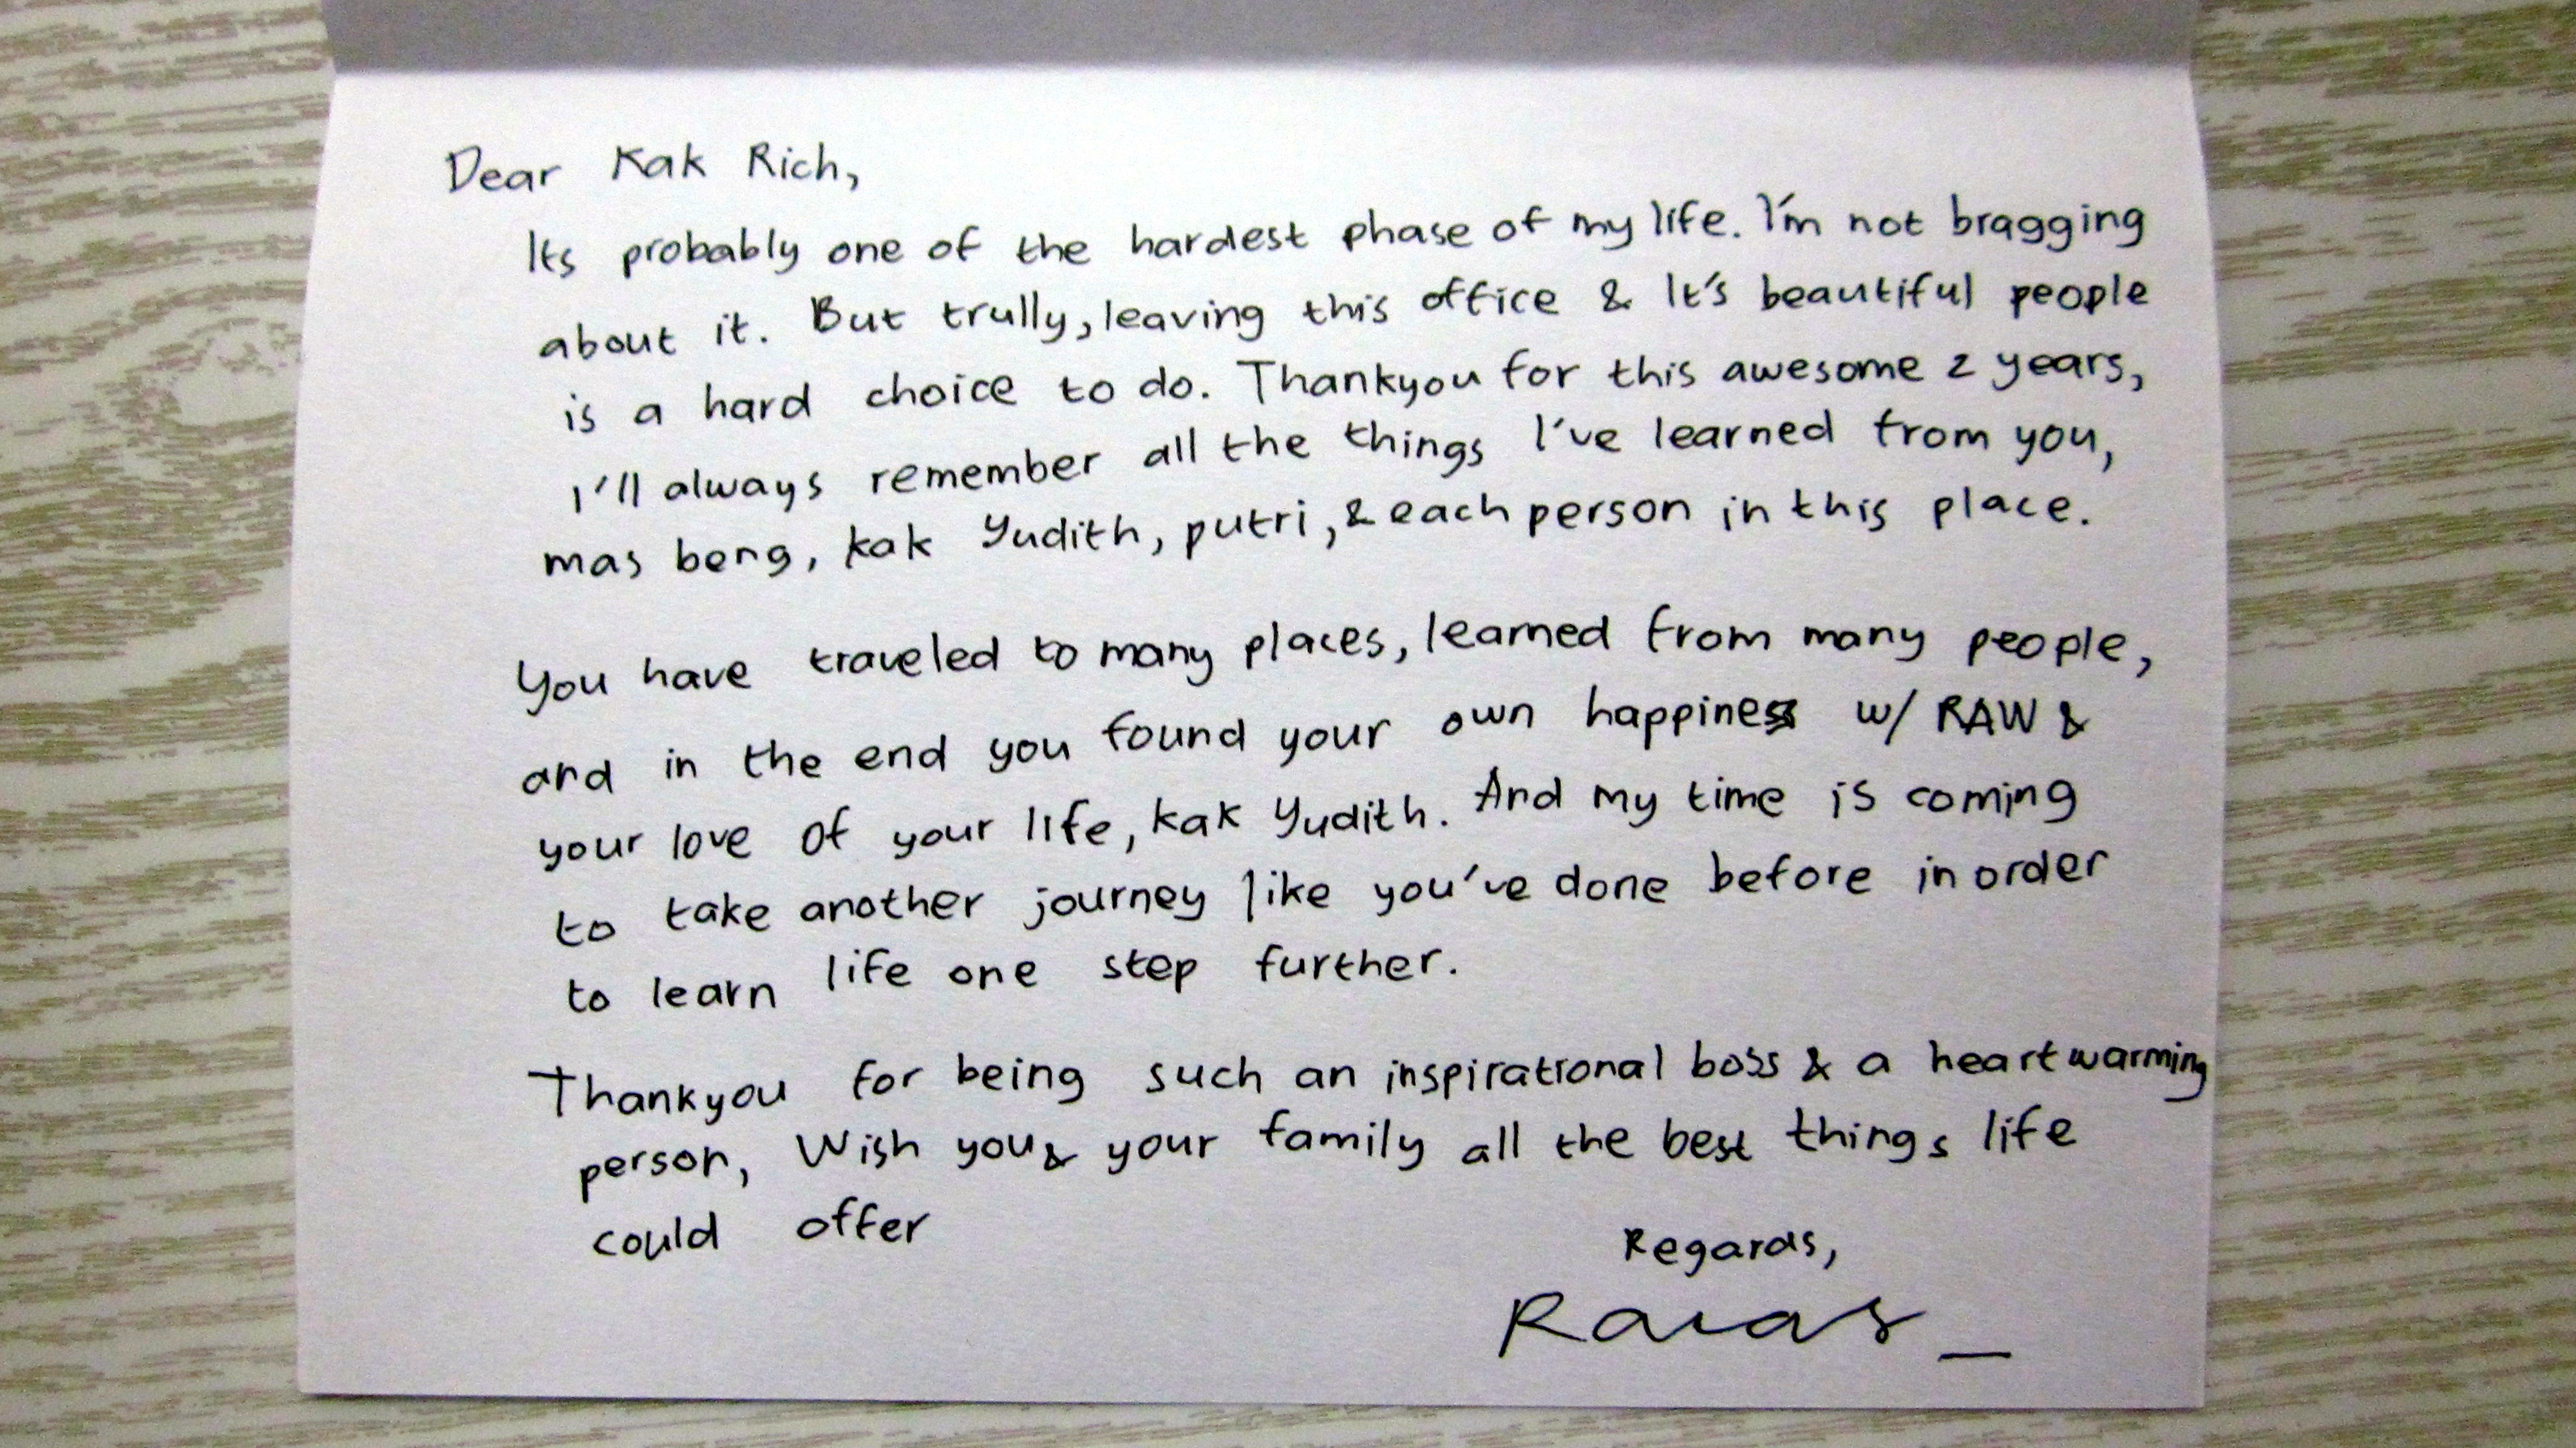 Dear Kak Rich,
Its probably one of the hardest phase of my life. I'm not bragging
about it. But trully, leaving this office & It's beautiful people
is a hard choice to do. Thankyou for this awesome 2 years,
I'll always remember all the things I've learned from you,
mas beng, kak Yudith, putri, & each person in this place.
You have traveled to many places, learned from many people,
and in the end you found your own happiness w/ RAW &
your love of your life, kak Yudith. And my time is coming
to take another journey like you've done before in order
to learn life one step further.
Thankyou for being such an inspirational boss & a heartwarming
person, Wish you & your family all the best things life
could offer
Regards,